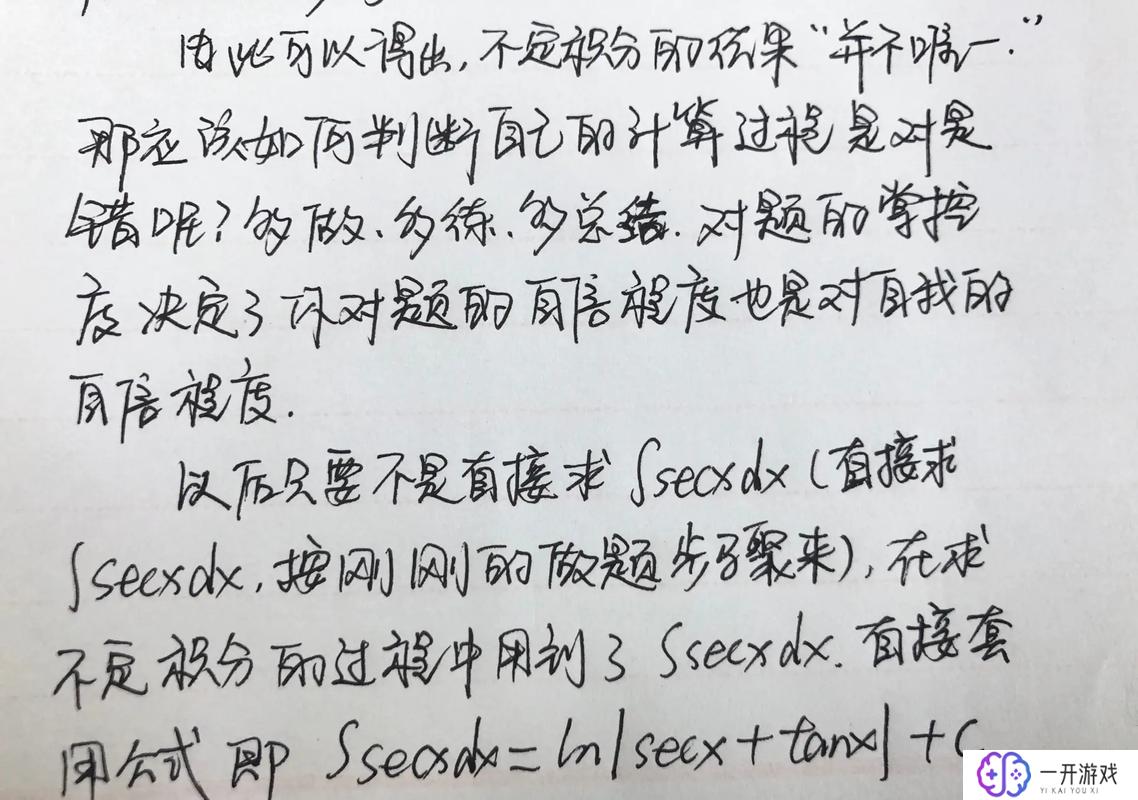 由此可以得出,不定积分的结果“并不唯一.”
那应该如何判断自己的计算过程是对是
错呢?多做、多练、多总结.对题的掌控
度决定了你对题的自信程度也是对自我的
自信程度.
以后只要不是直接求∫secxdx(直接求
∫secxdx,按刚刚的做题步骤来),在求
不定积分的过程中用到了∫secxdx.直接套
用公式即∫secxdx=ln|secx+tanx|+C
一开游戏
YI KAI YOU XI